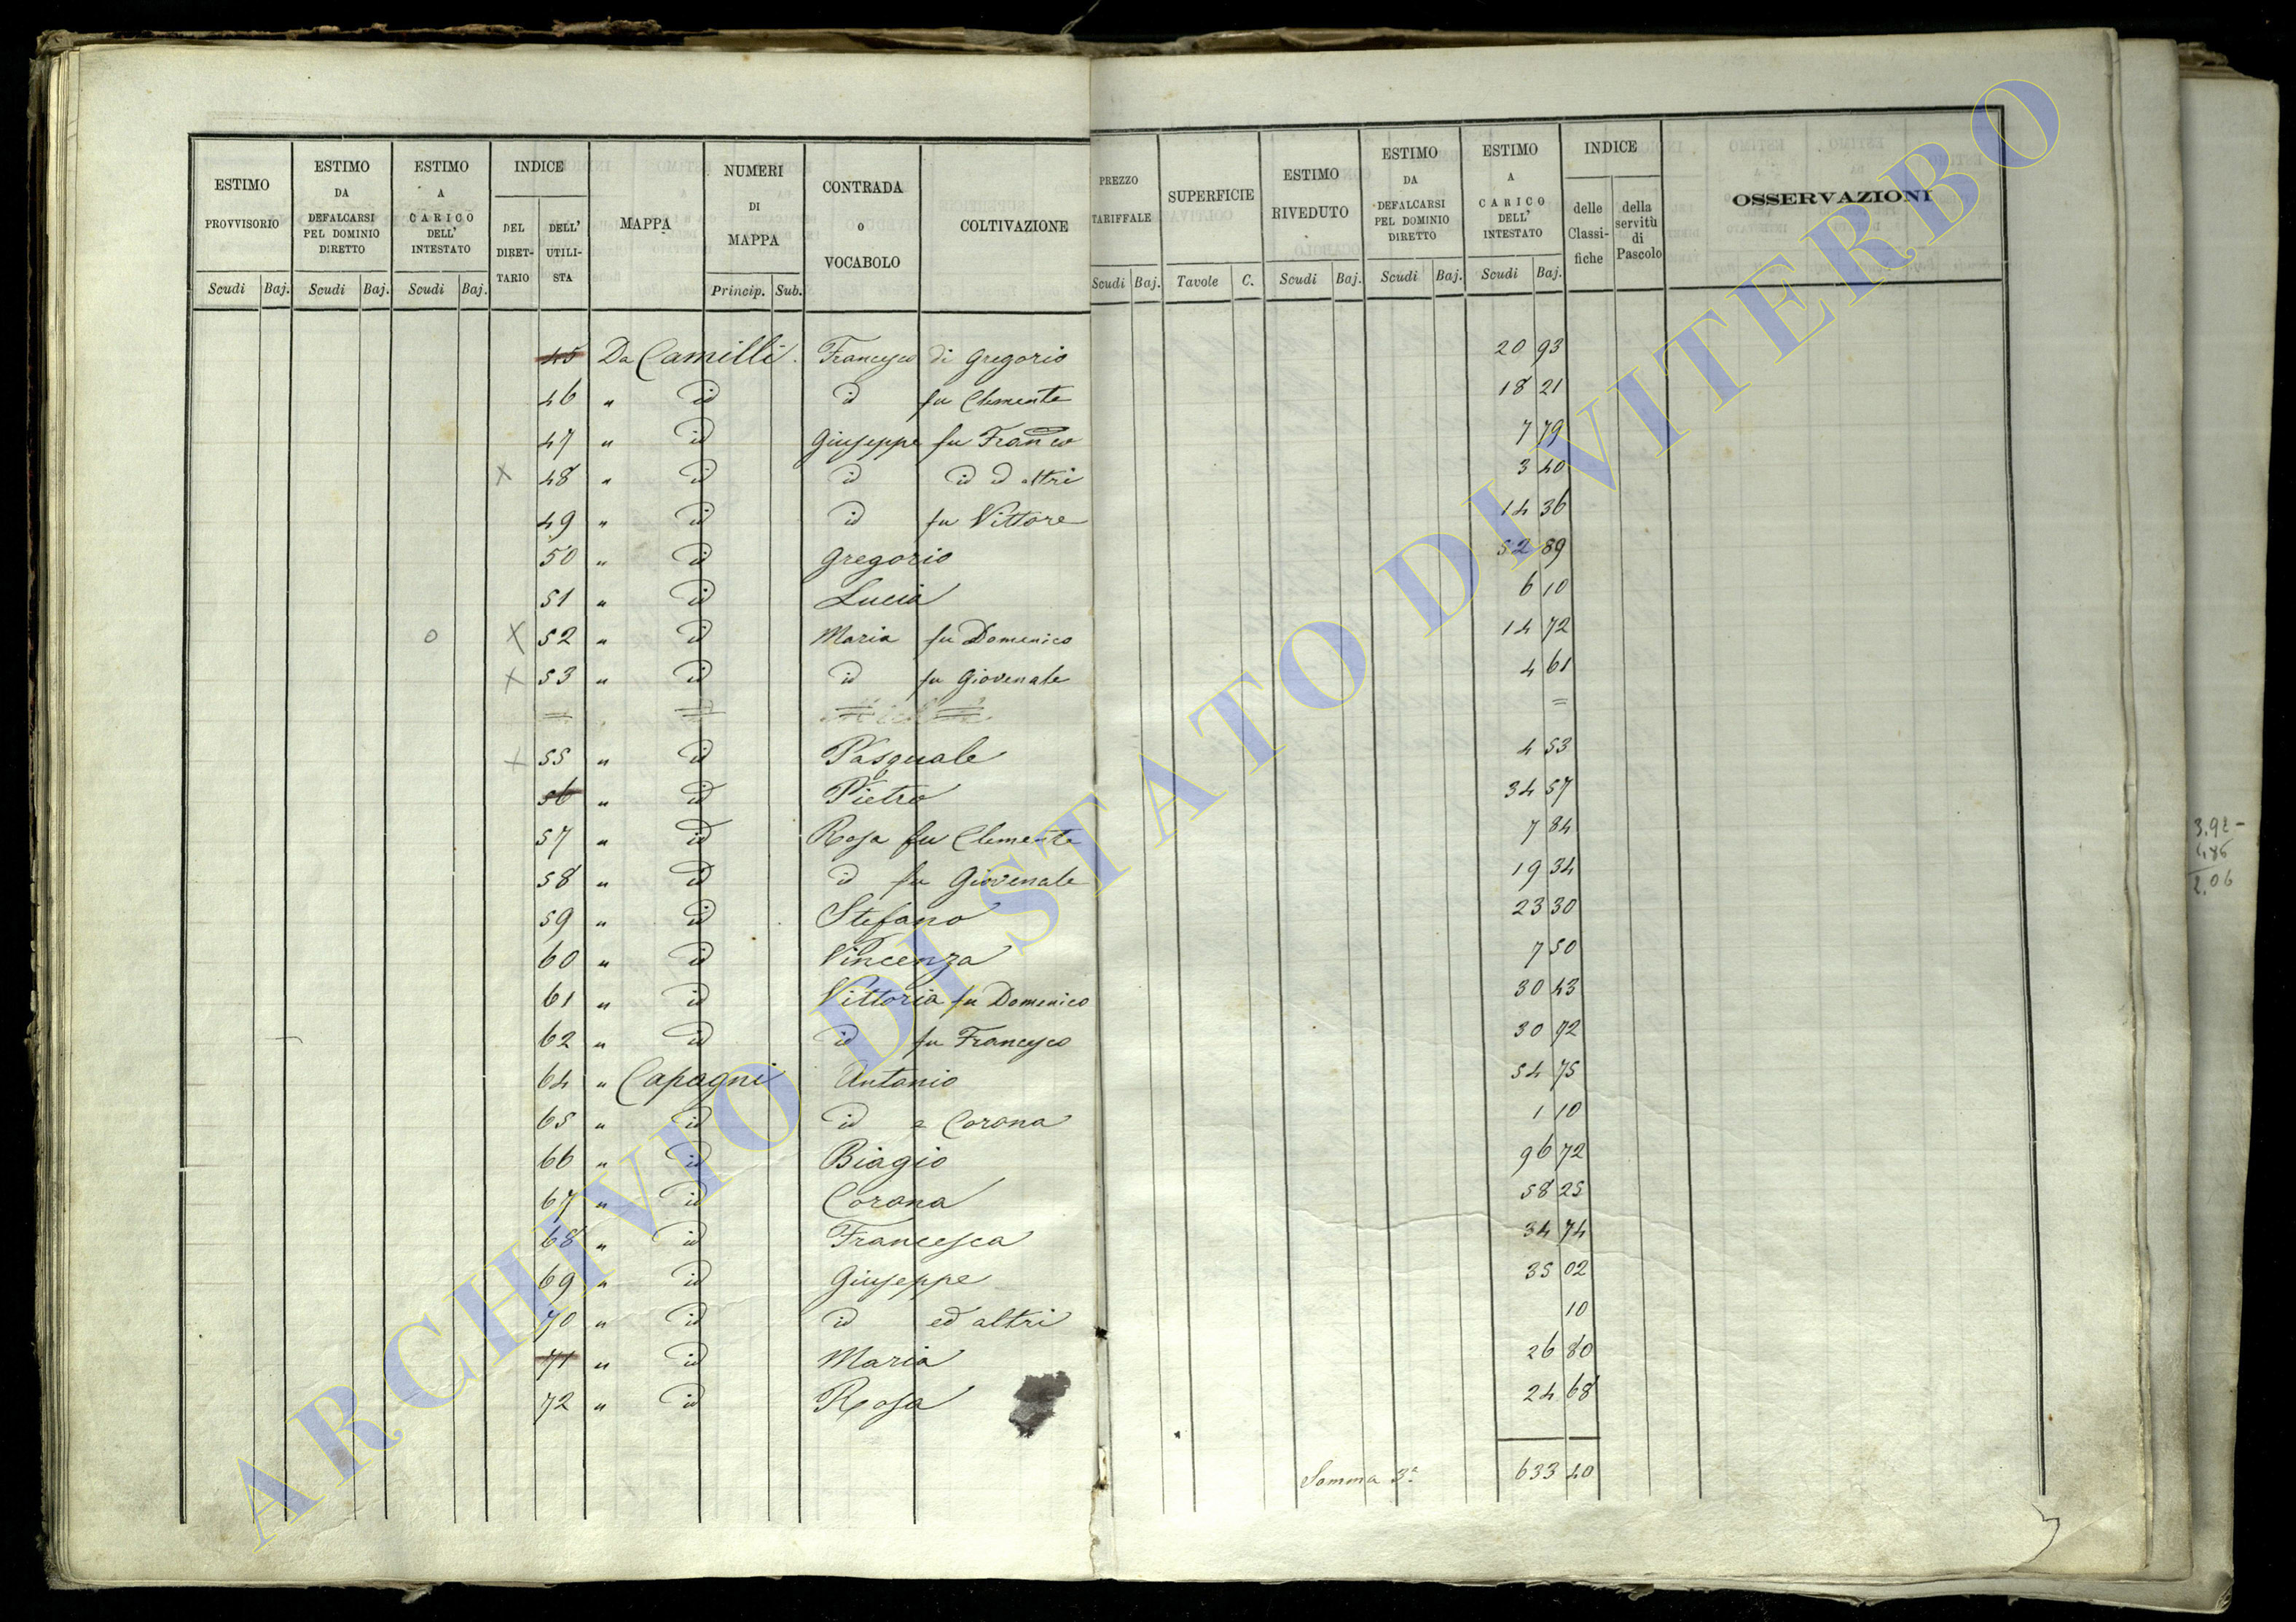 ESTIMO PROVVISORIO | ESTIMO DA DEFALCARSI PEL DOMINIO DIRETTO | ESTIMO A CARICO DELL' INTESTATO | INDICE | MAPPA | NUMERI DI MAPPA | CONTRADA O VOCABOLO | COLTIVAZIONE | PREZZO TARIFFALE | SUPERFICIE | ESTIMO RIVEDUTO | ESTIMO DA DEFALCARSI PEL DOMINIO DIRETTO | ESTIMO A CARICO DELL' INTESTATO | INDICE | OSSERVAZIONI
DEL DIRETTARIO | DELL' UTILISTA | delle Classifiche | della servitù di Pascolo
Scudi | Baj. | Scudi | Baj. | Scudi | Baj. | Princip. | Sub. | Scudi | Baj. | Tavole | C. | Scudi | Baj. | Scudi | Baj. | Scudi | Baj.
45 Da Camilli Francesco di Gregorio 20 93
46 " id id fu Clemente 18 21
47 " id Giuseppe fu Franco 7 79
X 48 " id id id ed altri 3 40
49 " id id fu Vittore 14 36
50 " id Gregorio 52 89
51 " id Lucia 6 10
o X 52 " id Maria fu Domenico 14 72
X 53 " id id fu Giovenale 4 61
=
X 55 " id Pasquale 4 53
56 " id Pietro 34 57
57 " id Rosa fu Clemente 7 84
58 " id id fu Giovenale 19 34
59 " id Stefano 23 30
60 " id Vincenza 7 50
61 " id Vittoria fu Domenico 30 43
62 " id id fu Francesco 30 72
64 " Capagni Antonio 54 75
65 " id id e Corona 1 10
66 " id Biagio 96 72
67 " id Corona 58 25
68 " id Francesca 34 74
69 " id Giuseppe 35 02
70 " id id ed altri 10
71 " id Maria 26 80
72 " id Rosa 24 68
Somma 3ª 633 40
2.06
ARCHIVIO DI STATO DI VITERBO